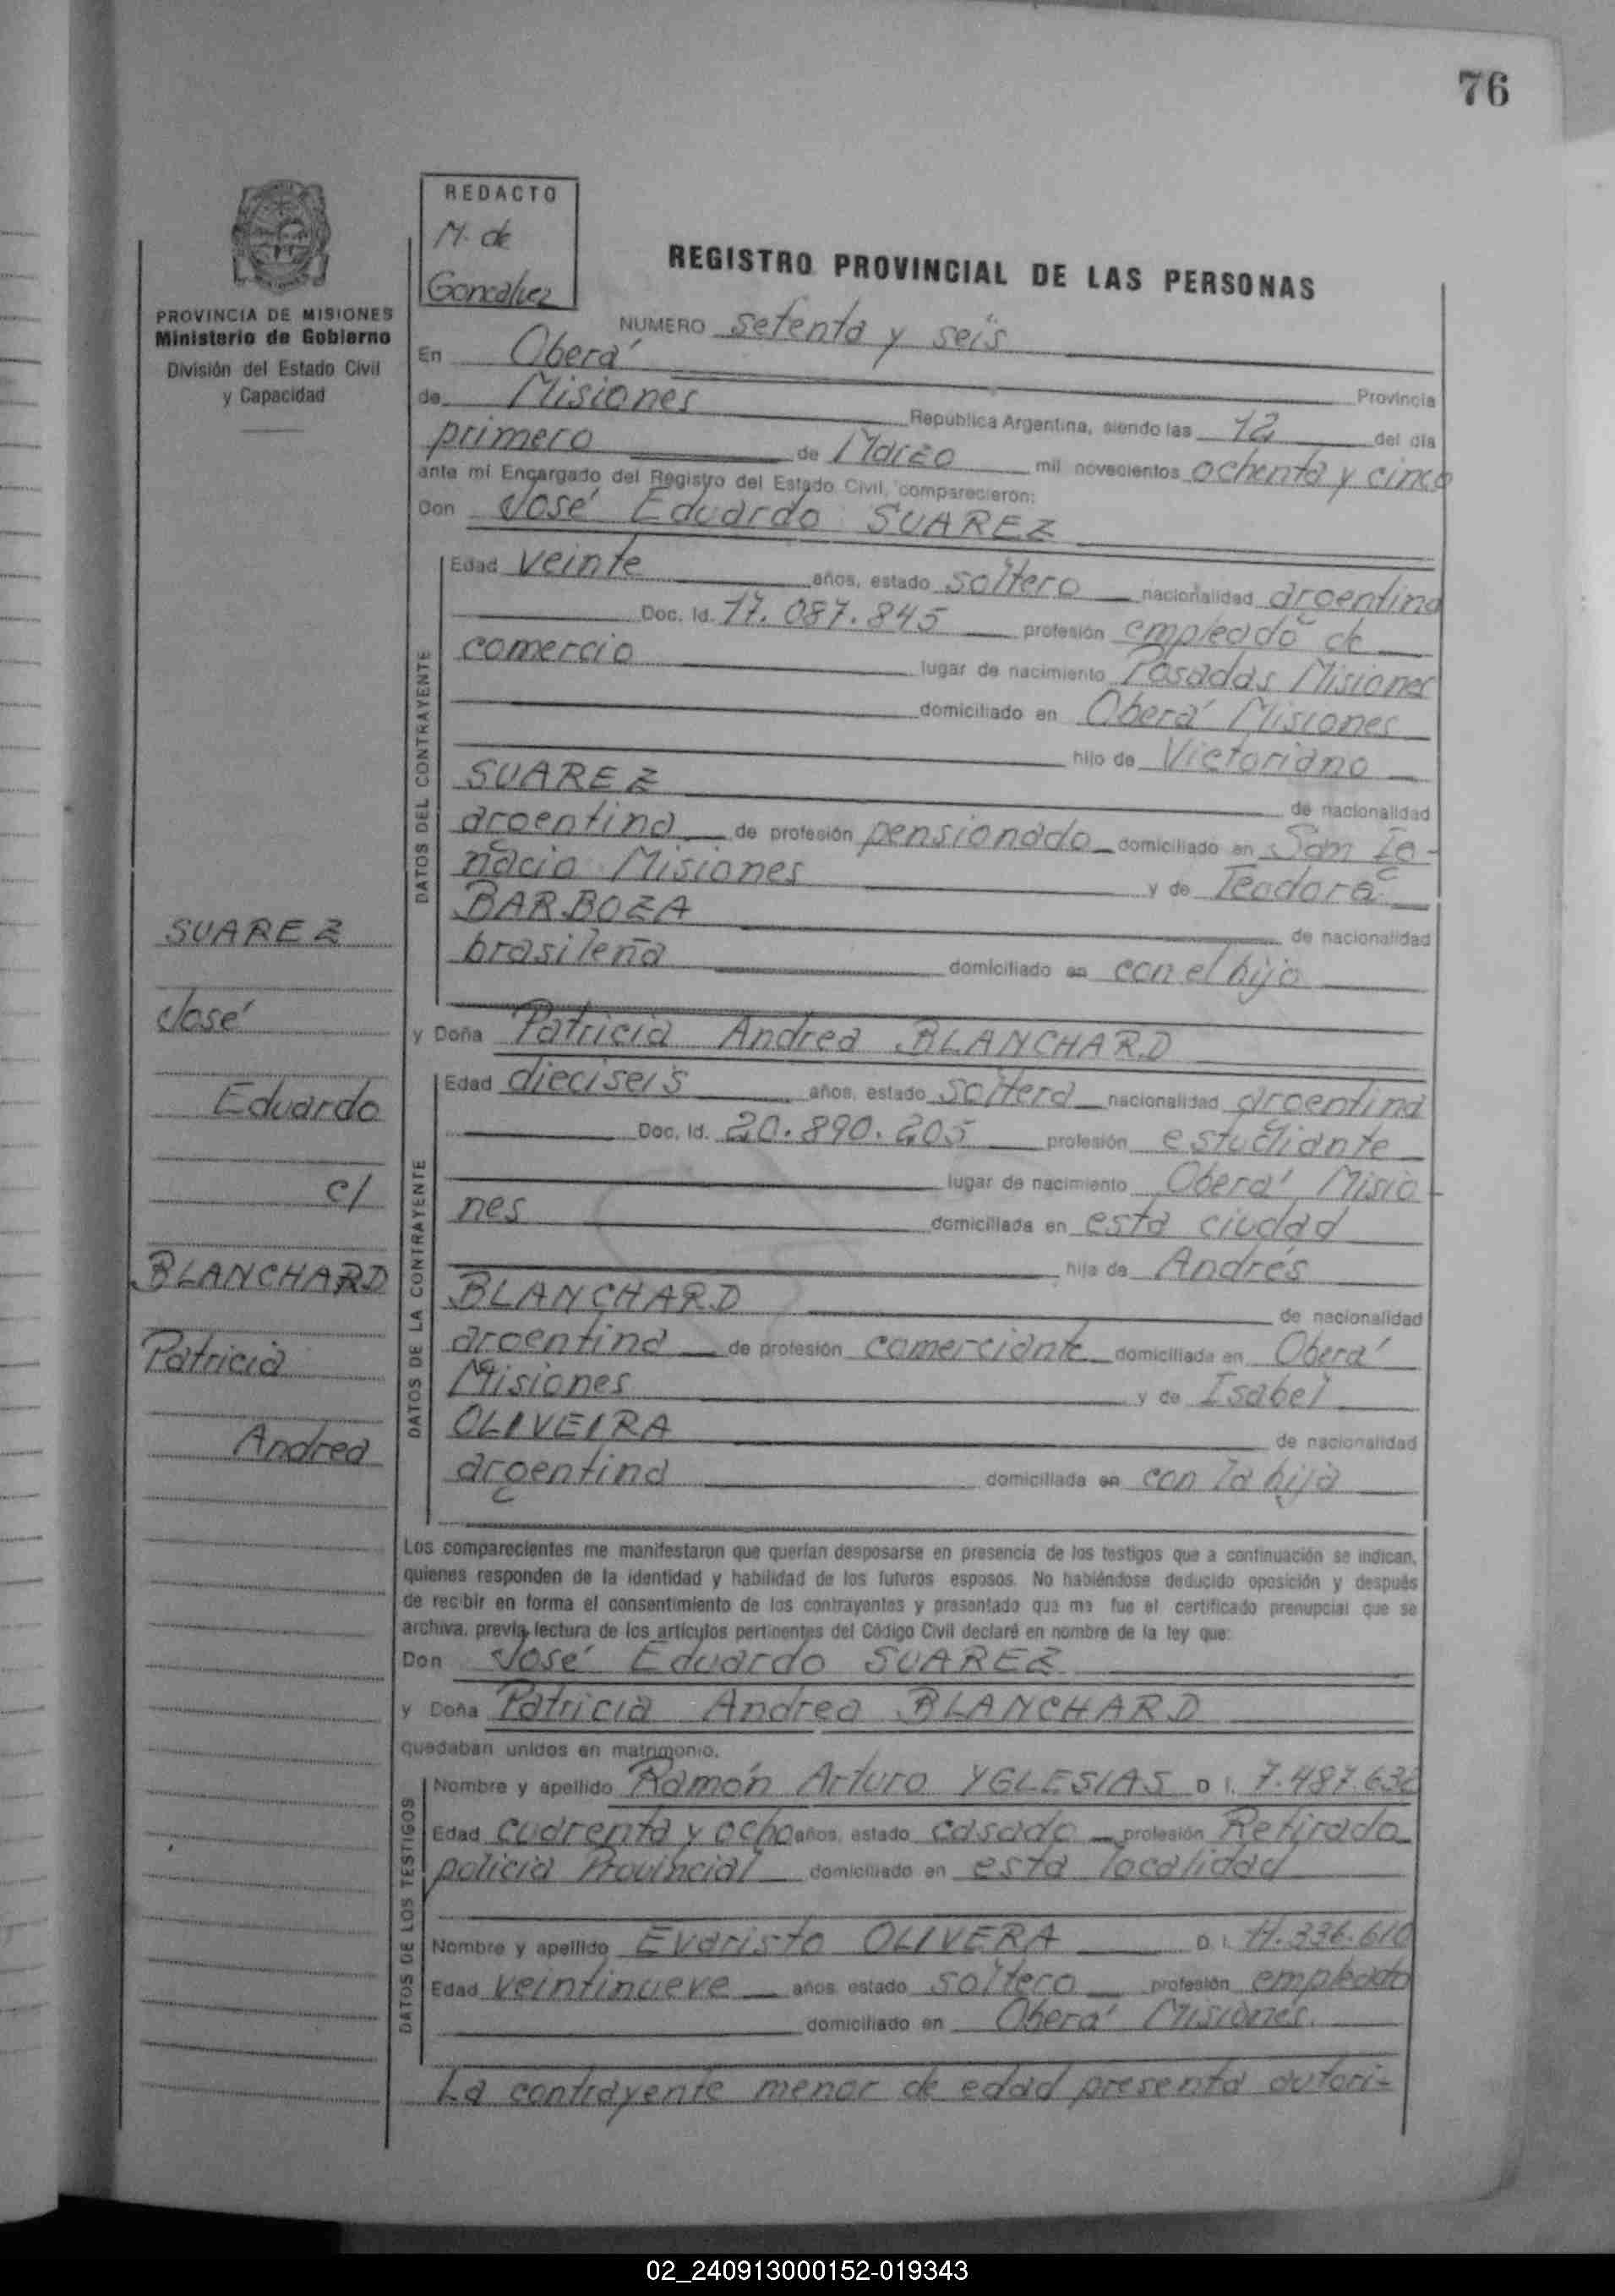 76
REDACTO
M. de
Goncalvez
PROVINCIA DE MISIONES
Ministerio de Gobierno
División del Estado Civil
y Capacidad
REGISTRO PROVINCIAL DE LAS PERSONAS
NUMERO setenta y seis
En Oberá Provincia
de Misiones República Argentina, siendo las 12 del día
primero de Marzo mil novecientos ochenta y cinco
ante mí Encargado del Registro del Estado Civil, comparecieron:
Don José Eduardo SUAREZ
DATOS DEL CONTRAYENTE
Edad veinte años, estado soltero nacionalidad argentina
Doc. Id. 17.087.845 profesión empleado de
comercio lugar de nacimiento Posadas Misiones
domiciliado en Oberá Misiones
hijo de Victoriano
SUAREZ de nacionalidad
argentina de profesión pensionado domiciliado en San Ig-
nacio Misiones y de Teodora
BARBOZA de nacionalidad
brasileña domiciliado en con el hijo
y Doña Patricia Andrea BLANCHARD
DATOS DE LA CONTRAYENTE
Edad dieciseis años, estado soltera nacionalidad argentina
Doc. Id. 20.890.205 profesión estudiante
lugar de nacimiento Oberá Misio-
nes domiciliada en esta ciudad
hija de Andrés
BLANCHARD de nacionalidad
argentina de profesión comerciante domiciliada en Oberá
Misiones y de Isabel
OLIVEIRA de nacionalidad
argentina domiciliada en con la hija
SUAREZ
José
Eduardo
c/
BLANCHARD
Patricia
Andrea
Los comparecientes me manifestaron que querían desposarse en presencia de los testigos que a continuación se indican,
quienes responden de la identidad y habilidad de los futuros esposos. No habiéndose deducido oposición y después
de recibir en forma el consentimiento de los contrayentes y presentado que me fue el certificado prenupcial que se
archiva, previa lectura de los artículos pertinentes del Código Civil declaré en nombre de la ley que:
Don José Eduardo SUAREZ
y Doña Patricia Andrea BLANCHARD
quedaban unidos en matrimonio.
DATOS DE LOS TESTIGOS
Nombre y apellido Ramón Arturo YGLESIAS D. I. 7.487.632
Edad cuarenta y ocho años, estado casado profesión Retirado
policia Provincial domiciliado en esta localidad
Nombre y apellido Evaristo OLIVERA D. I. 11.336.610
Edad veintinueve años estado soltero profesión empleado
domiciliado en Oberá Misiones.
La contrayente menor de edad presenta autori-
02_240913000152-019343